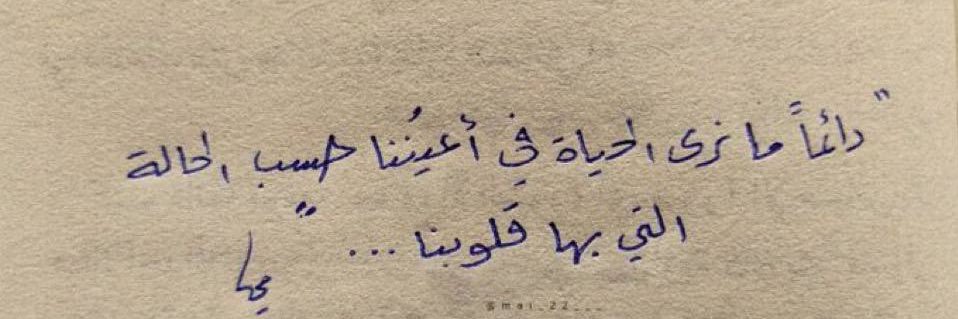 "دائماً ما نرى الحياة في أعيُننا حسب الحالة
التي بها قلوبنا ..."
@mai_22___